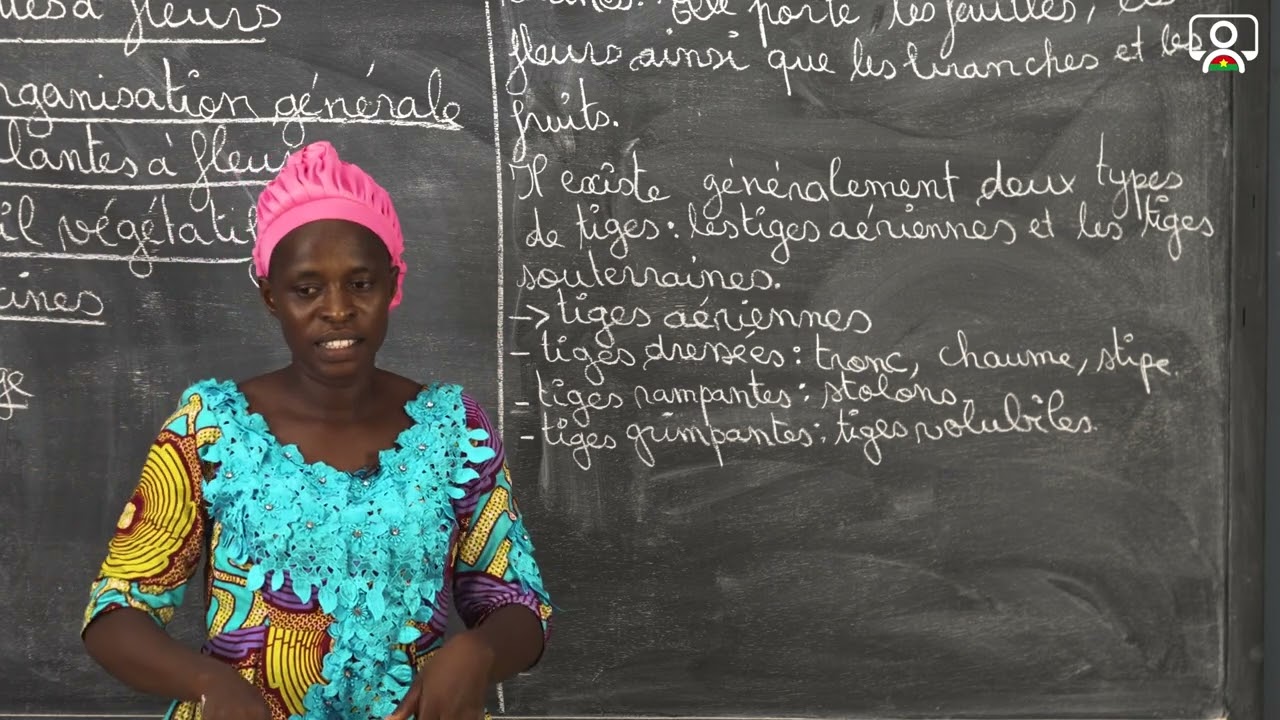 à fleurs
organisation générale
plantes à fleurs
végétatif
Elle porte les feuilles, les
fleurs ainsi que les branches et les
fruits.
Il existe généralement deux types
de tiges: les tiges aériennes et les tiges
souterraines.
→ tiges aériennes
- tiges dressées: tronc, chaume, stipe.
- tiges rampantes: stolons.
- tiges grimpantes: tiges volubiles.